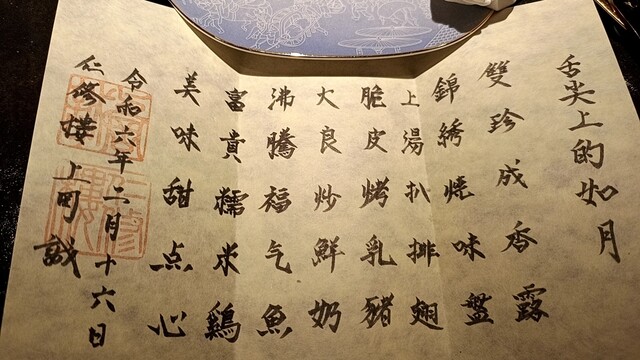 舌尖上的如月
雙珍成香露
錦綉焼味盤
上湯扒排翅
脆皮烤乳豬
大良炒鮮奶
沸騰福气魚
富貴糯米鶏
美味甜点心
令和六年二月十六日
仁修樓 上岡誠